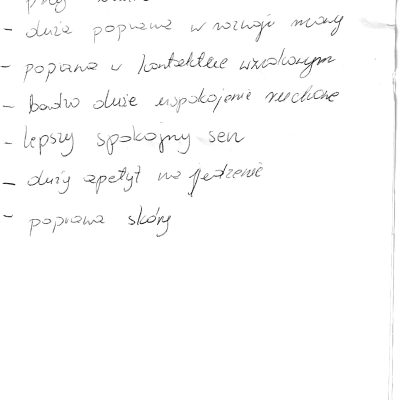 - duża poprawa w rozwoju mowy
- poprawa w kontakcie wzrokowym
- bardzo duże uspokojenie ruchowe
- lepszy spokojny sen
- duży apetyt na jedzenie
- poprawa skóry